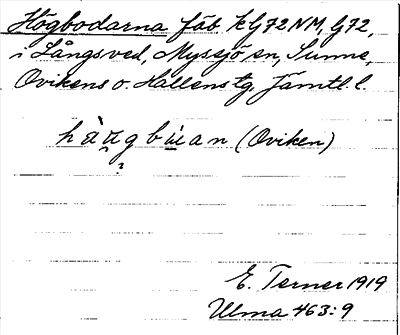 Högbodarna fäb. kG72NM, G72,
i Långsved, Myssjö sn, Sunne,
Ovikens o. Hallens tg, Jämtl. l.
hàu̯gbùan (Oviken)
?
E. Terner 1919
Ulma 463:9